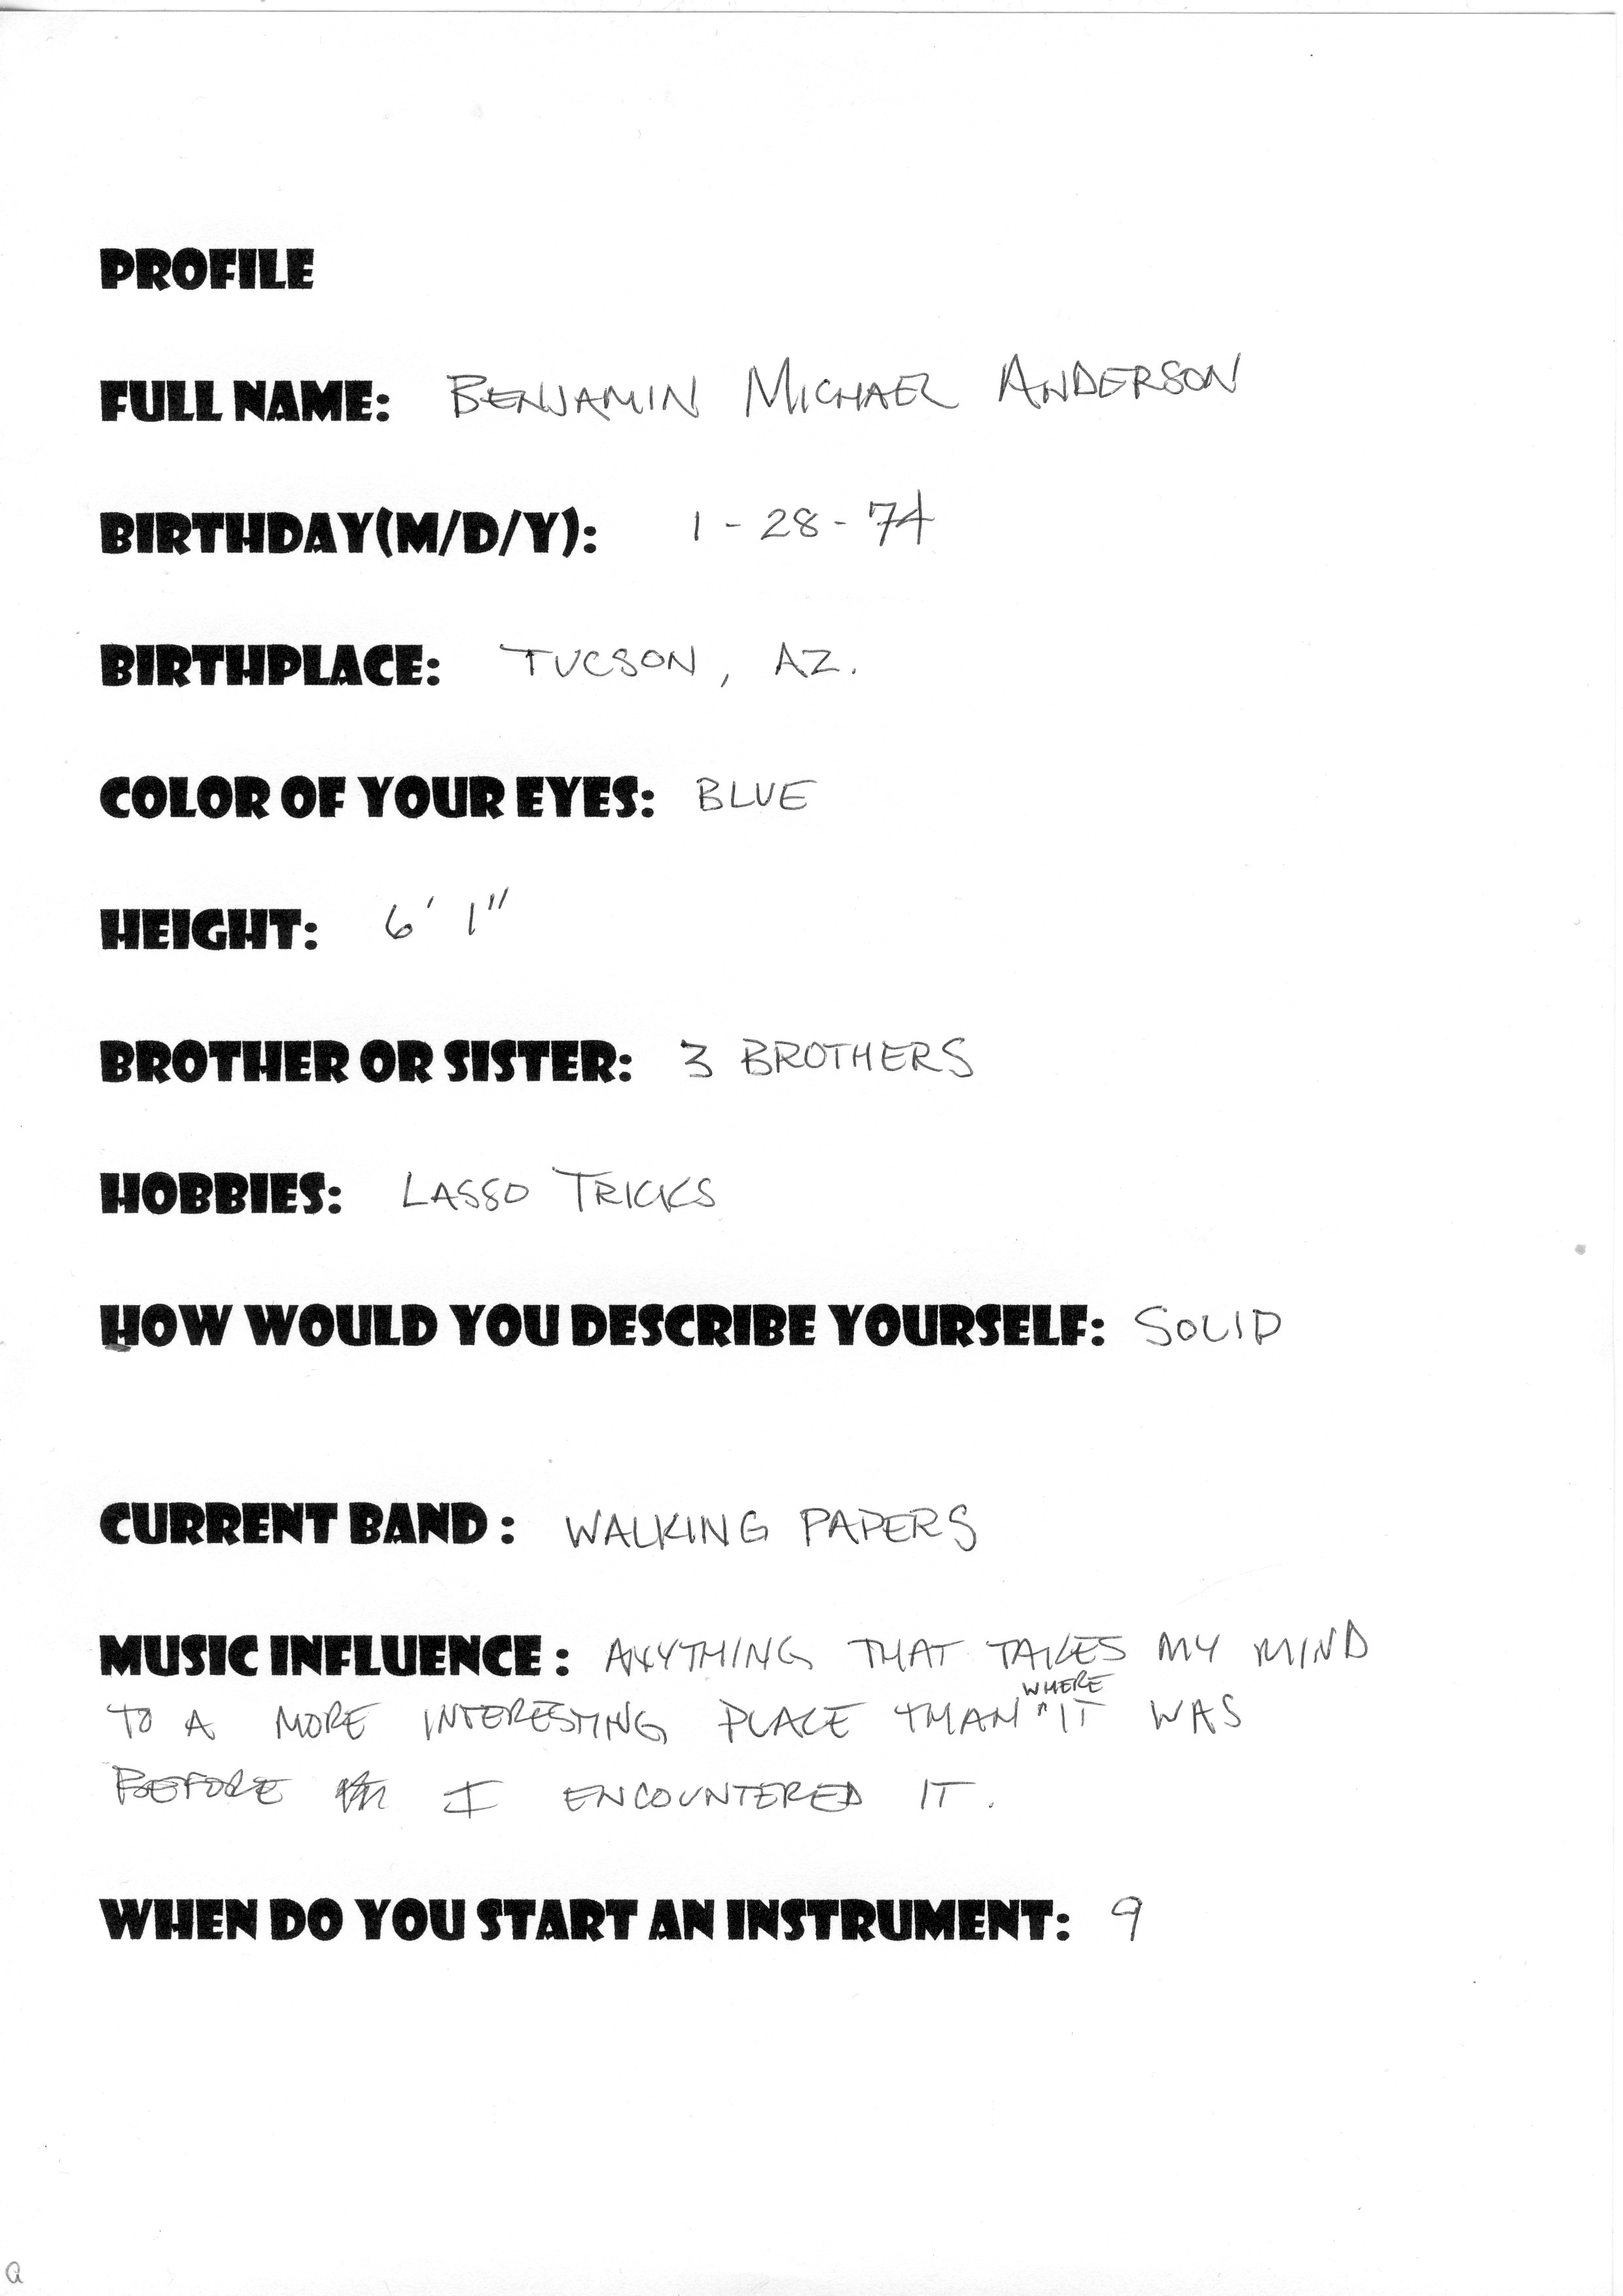 PROFILE
FULL NAME: BENJAMIN MICHAEL ANDERSON
BIRTHDAY(M/D/Y): 1-28-74
BIRTHPLACE: TUCSON, AZ.
COLOR OF YOUR EYES: BLUE
HEIGHT: 6' 1"
BROTHER OR SISTER: 3 BROTHERS
HOBBIES: LASSO TRICKS
HOW WOULD YOU DESCRIBE YOURSELF: SOLID
CURRENT BAND : WALKING PAPERS
MUSIC INFLUENCE : ANYTHING THAT TAKES MY MIND
TO A MORE INTERESTING PLACE THAN WHERE IT WAS
BEFORE I ENCOUNTERED IT.
WHEN DO YOU START AN INSTRUMENT: 9
a